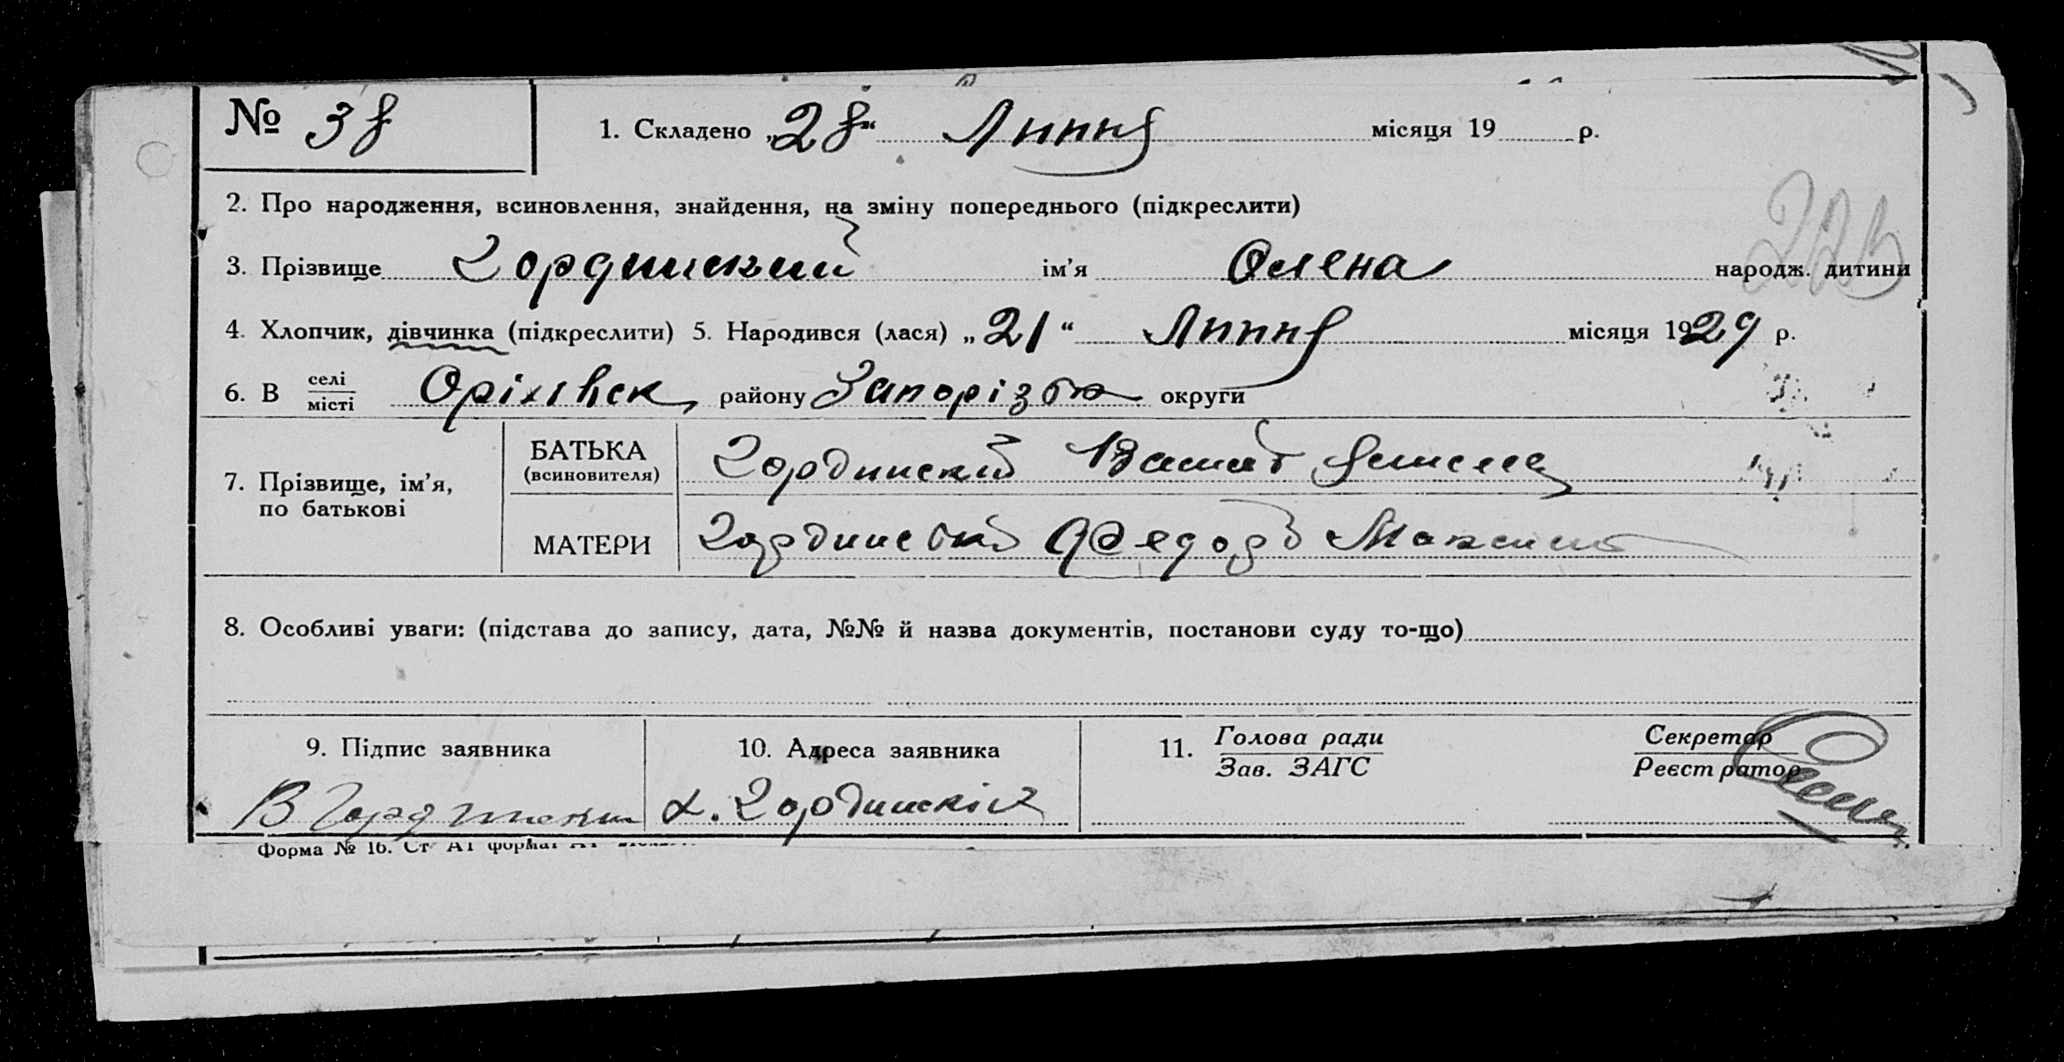 № 38
1. Складено „28“ Липня місяця 19 р.
2. Про народження, всиновлення, знайдення, на зміну попереднього (підкреслити)
3. Прізвище Гординский ім’я Олена народж. дитини
4. Хлопчик, дівчинка (підкреслити) 5. Народився (лася) „21“ Липня місяця 1929 р.
6. В селі Оріхівск району Запорізька округи
місті
БАТЬКА
(всиновителя)
Гординский
7. Прізвище, ім’я,
по батькові
МАТЕРИ Федора Максим
8. Особливі уваги: (підстава до запису, дата, №№ й назва документів, постанови суду то-що)
9. Підпис заявника 10. Адреса заявника 11. Голова ради Секретар
Зав. ЗАГС Реєстратор
В Гординский х. Гординскій
Форма № 16. Ст А1 формат